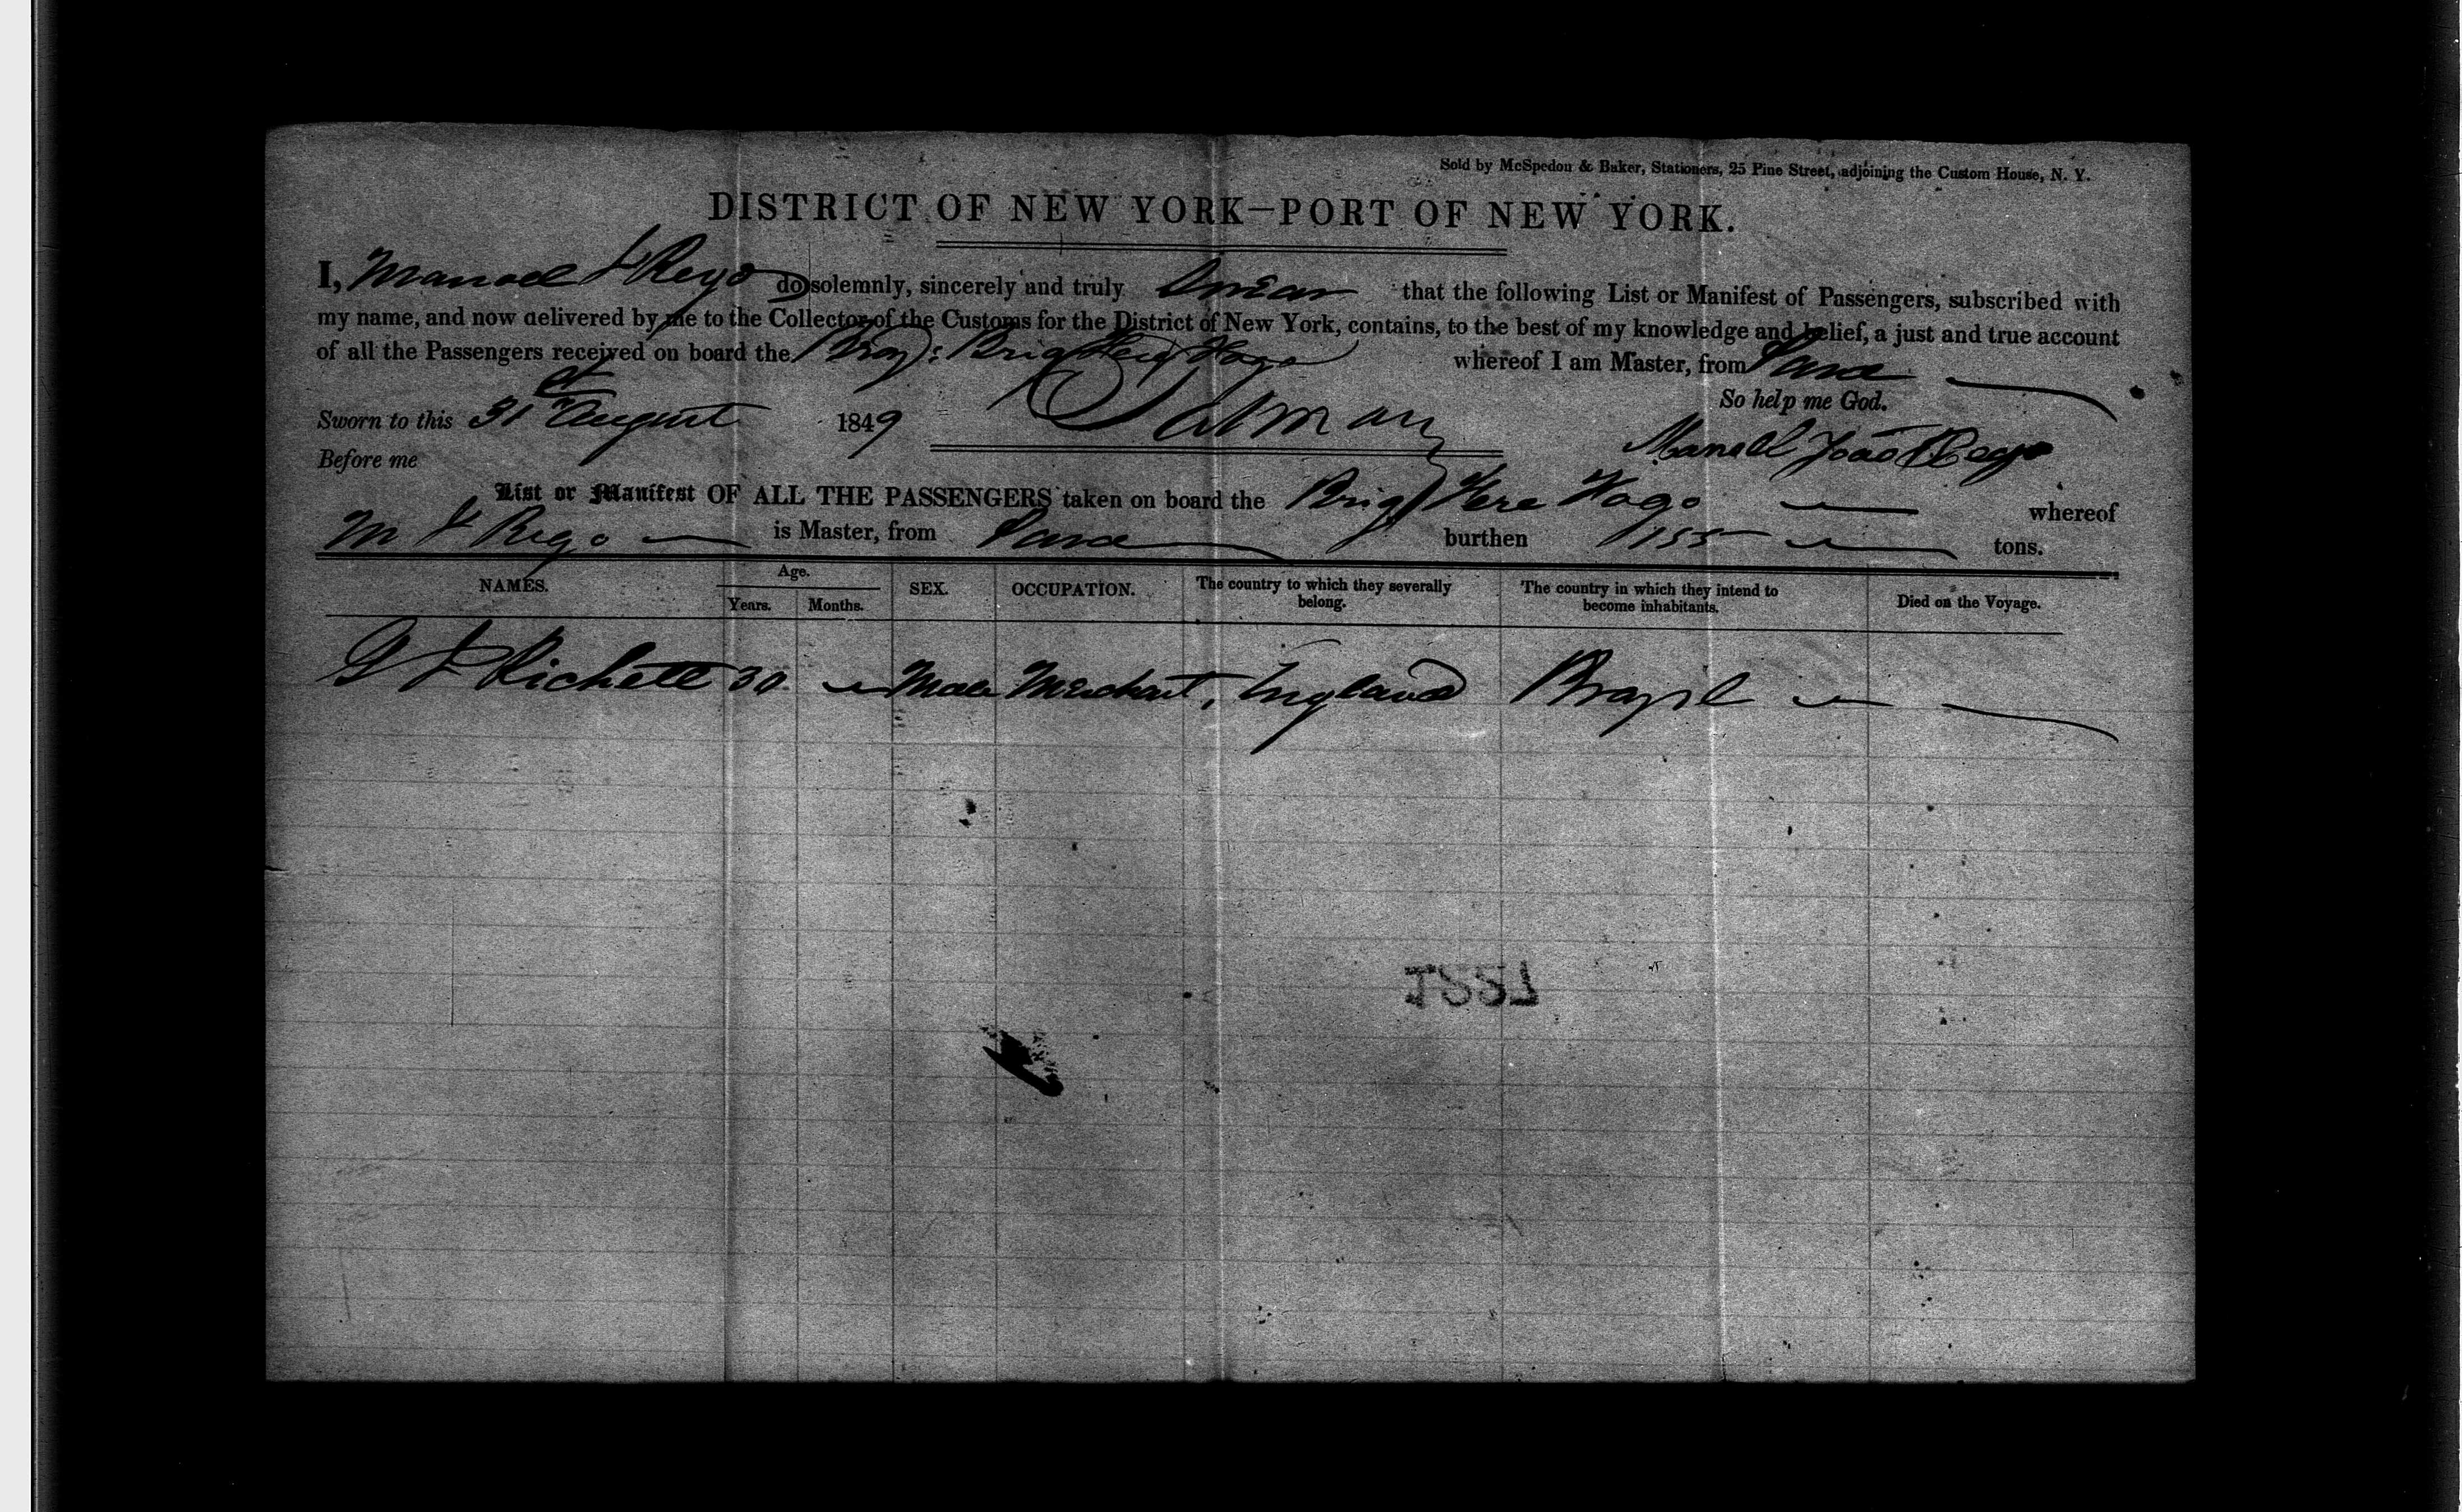 Sold by McSpedon & Baker, Stationers, 25 Pine Street, adjoining the Custom House, N. Y.
DISTRICT OF NEW YORK—PORT OF NEW YORK.
I, Manoel J Rego do solemnly, sincerely and truly Swear that the following List or Manifest of Passengers, subscribed with
my name, and now delivered by me to the Collector of the Customs for the District of New York, contains, to the best of my knowledge and belief, a just and true account
of all the Passengers received on board the Braz: Brig whereof I am Master, from Para
So help me God.
Sworn to this 31st August 1849
Manoel João Rego
Before me
List or Manifest OF ALL THE PASSENGERS taken on board the Brig whereof
M J Rego is Master, from Para burthen 155 tons.
NAMES. Age. Years. Months. SEX. OCCUPATION. The country to which they severally belong. The country in which they intend to become inhabitants. Died on the Voyage.
G 30 Male Merchant, England Brazil